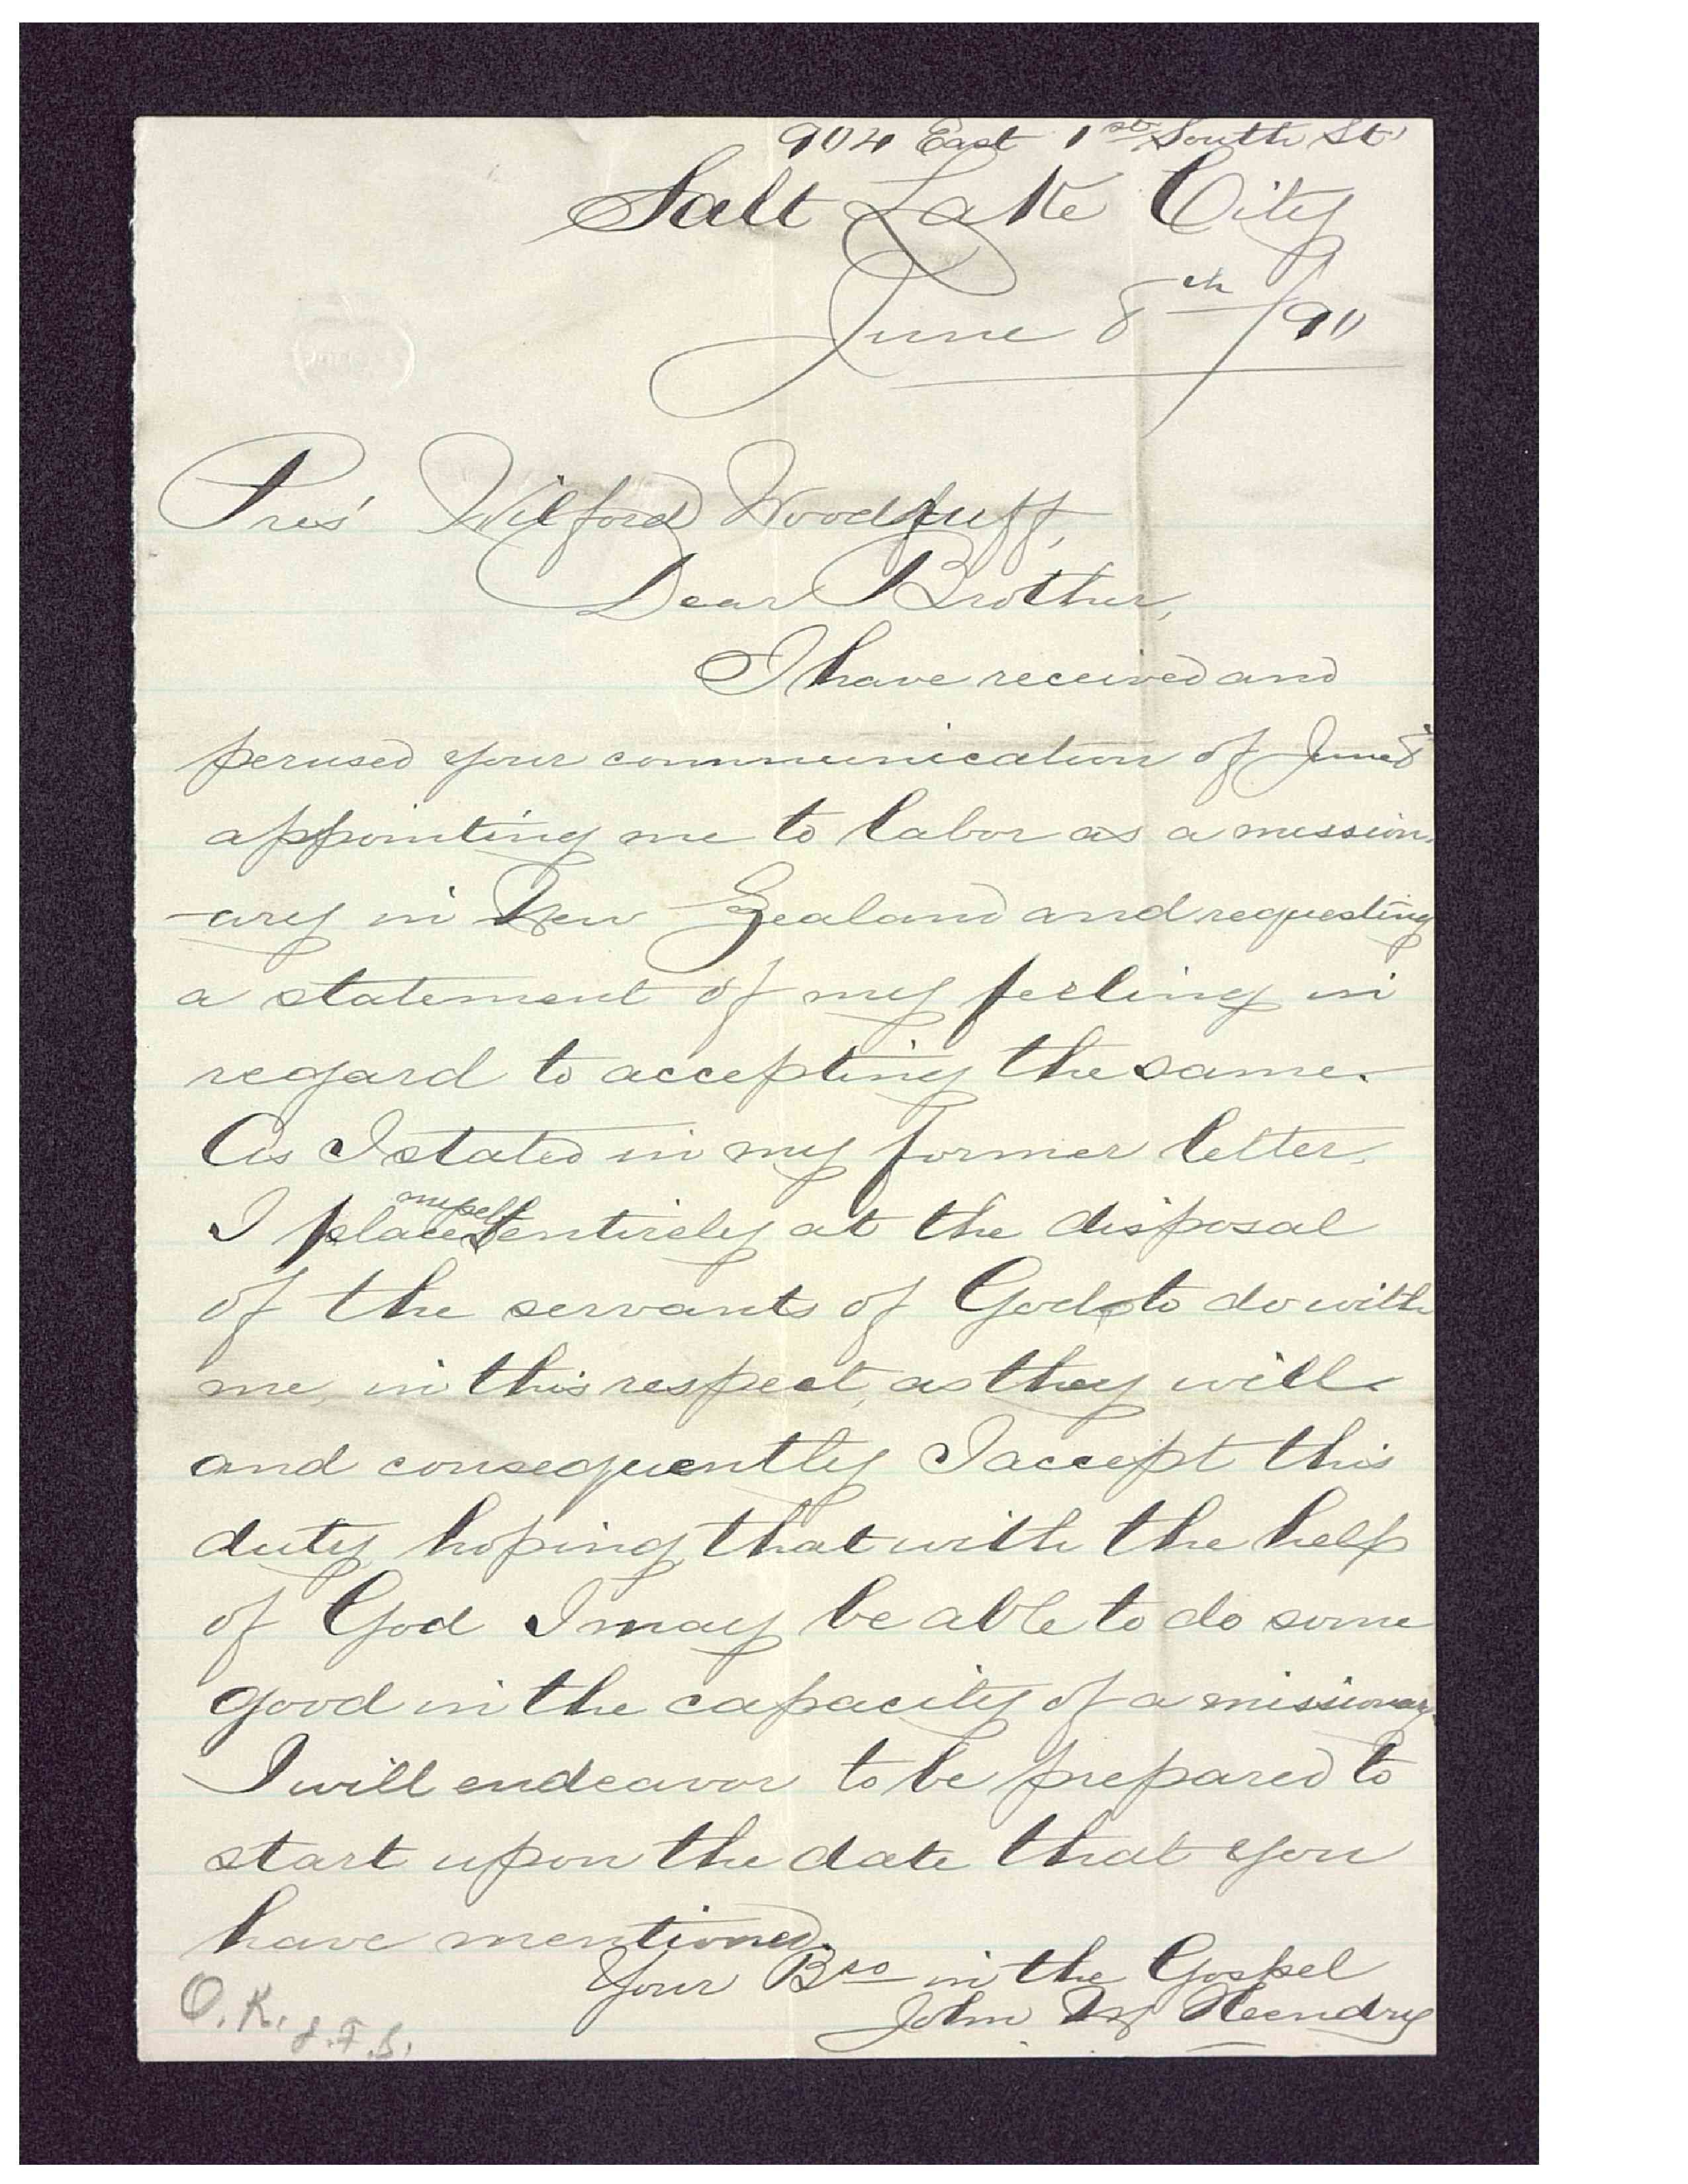 904 East 1st South St
Salt Lake City
June 8th /90
Pres' Wilford Woodruff,
Dear Brother,
I have received and
perused your communication of June
appointing me to labor as a mission-
-ary in New Zealand and requesting
a statement of my feeling in
regard to accepting the same.
As I stated in my former letter,
myself
I place entirely at the disposal
of the servants of God to do with
me, in this respect, as they will
and consequently I accept this
duty hoping that with the help
of God I may be able to do some
good in the capacity of a missionary.
I will endeavor to be prepared to
start upon the date that you
have mentioned.
Your Bro in the Gospel
John Hendry
O.K. J.F.S.